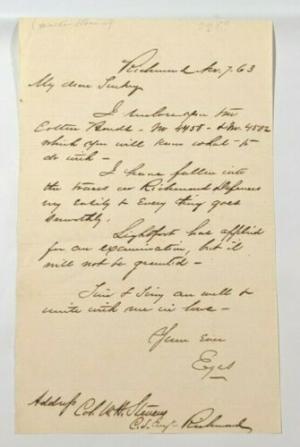 Richmond Nov. 7. 63
My dear
I enclose you two
Cotton Bonds - No 4458 - & No. 4502
which you will know what to
do with -
I have fallen into
the traces in Richmond Defences
very easily & every thing goes
smoothly.
Lightfoot has applied
for an examination, but it
will not be granted -
& are well &
unite with me in love -
Yours Ever
Address Col. W. H. Stevens
C. S. Engrs Richmond